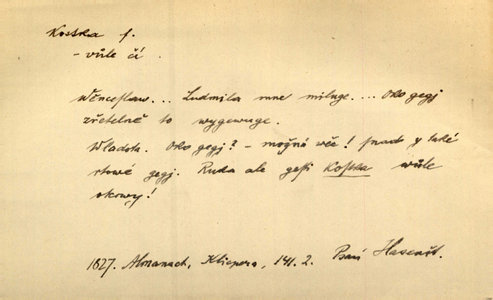 Kostka f.
- vůle čí.
Wěnceslaw... Ludmila mne miluge.... Oko gegj
zřetelně to wygewuge.
Wladota. Oko gegj? - možná wěc! snad y také
rtowé gegj. Ruka ale gest Kostka wůle
1827. Almanach, Klicpera, 141. 2.